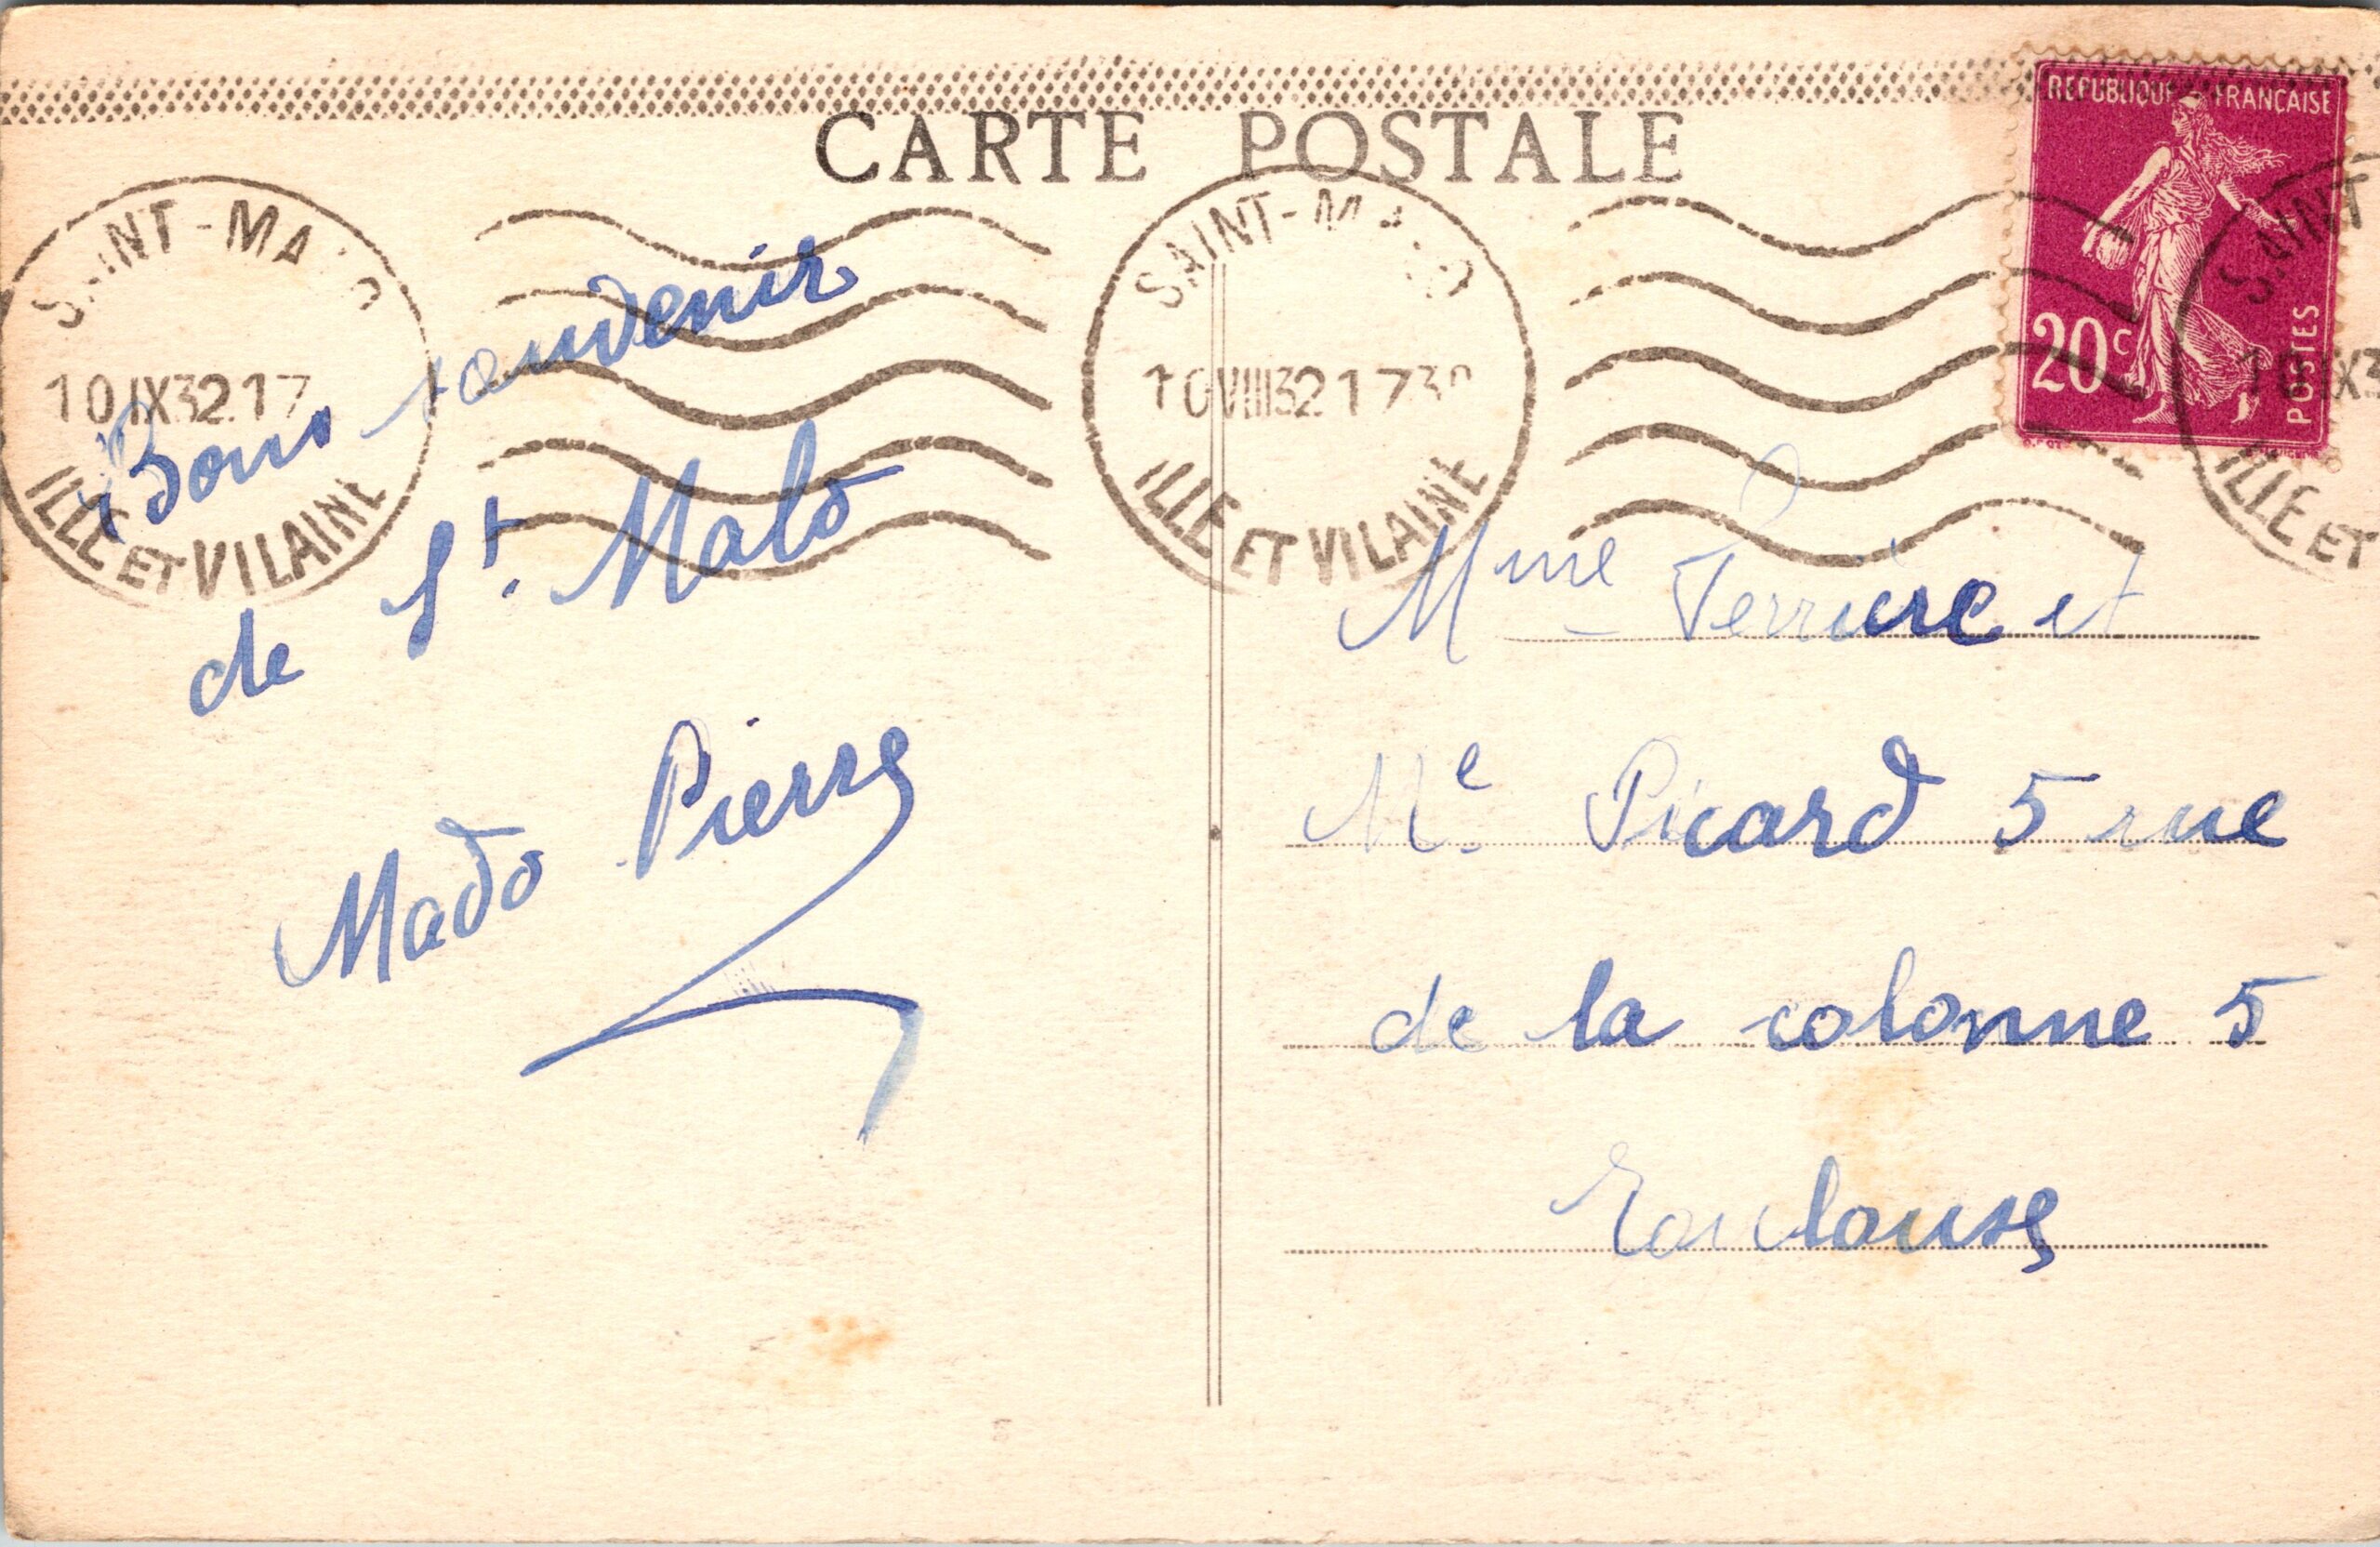 CARTE POSTALE
REPUBLIQUE FRANÇAISE
20c
POSTES
SAINT-MALO
10 IX 32 17
ILLE ET VILAINE
SAINT-MALO
10 VIII 32 17 30
ILLE ET VILAINE
SAINT
ILLE ET
Bons souvenir
de St. Malo
Mado Pierre
Mme Perrière et
Me Picard 5 rue
de la colonne 5
Toulouse